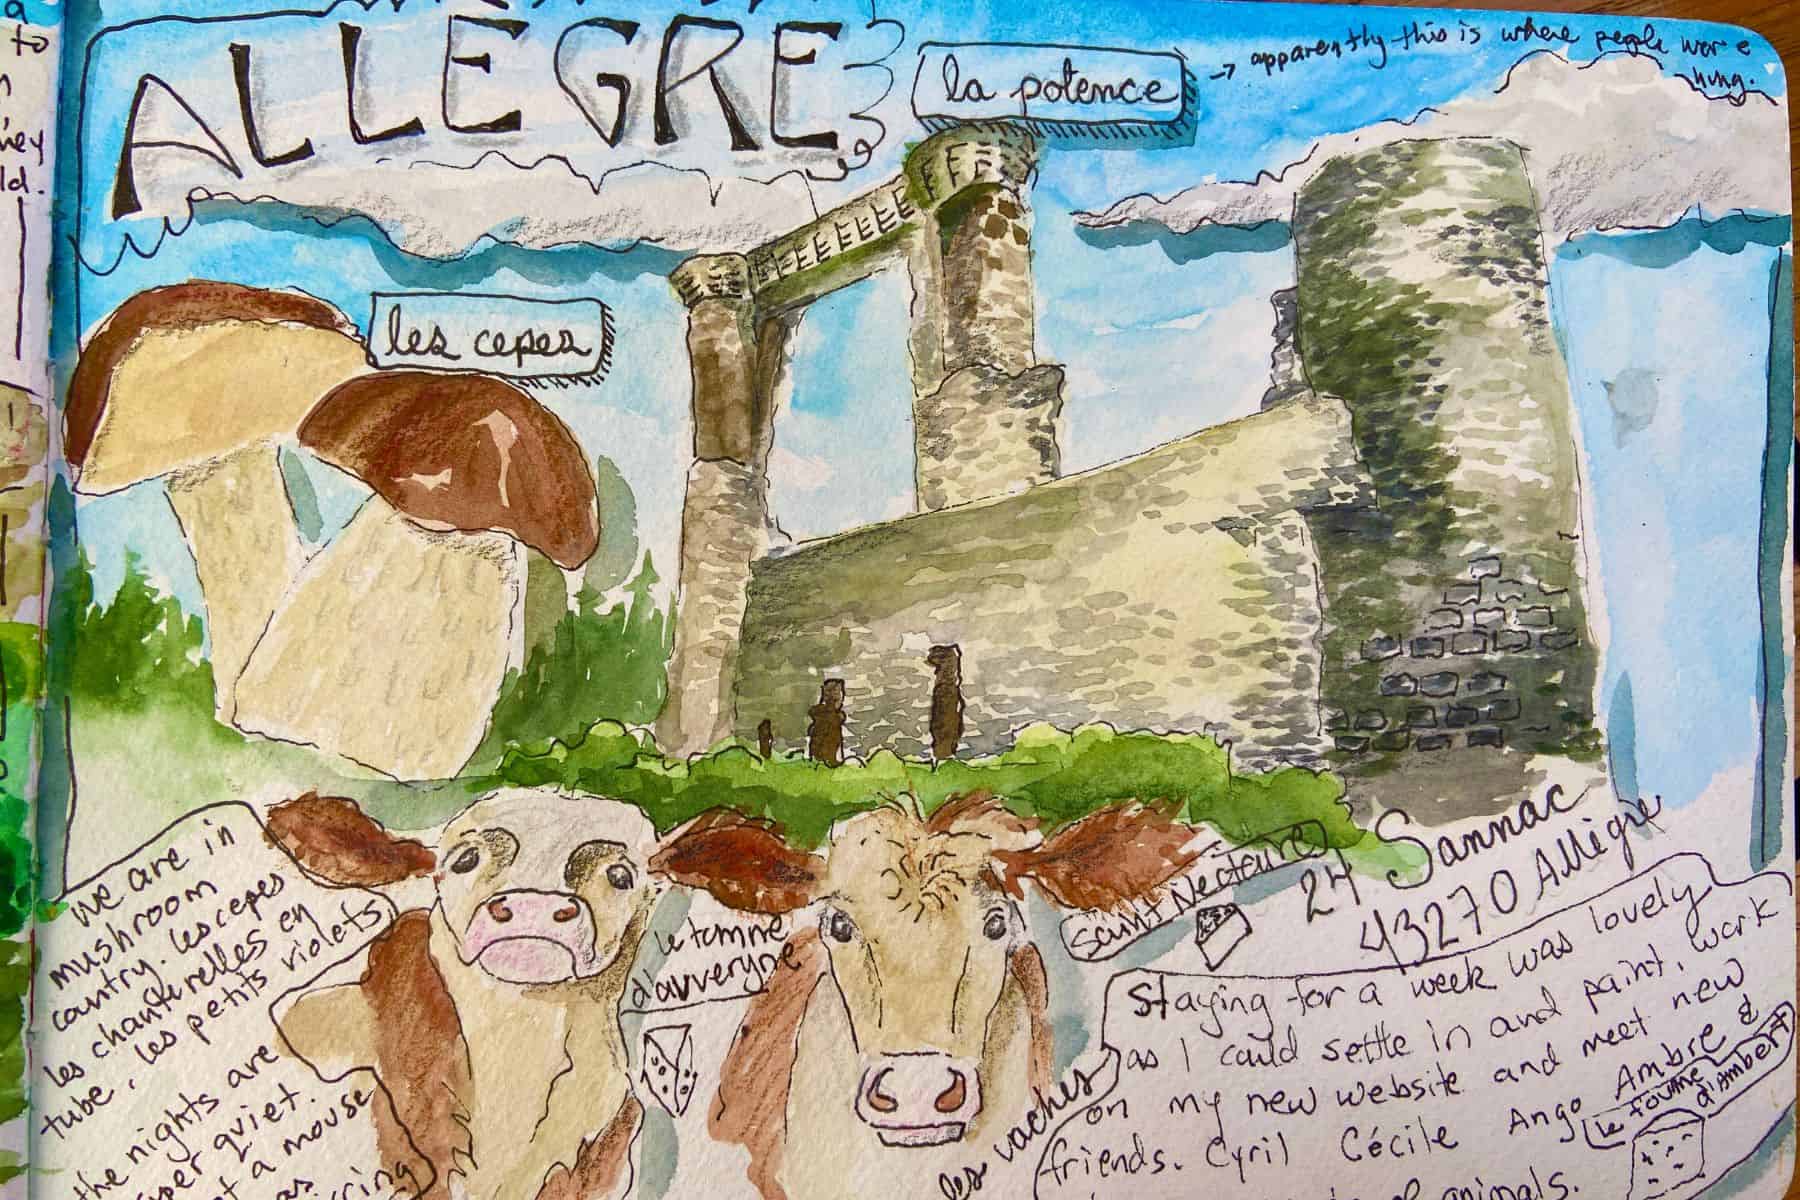 ALLEGRE
la potence
→ apparently this is where people were
hung.
les cepes
we are in
mushroom
country. les cepes
les chanterelles en
tube, les petits violets
the nights are
quiet.
a mouse
le tomme
d'auvergne
Saint Nectoure
24 Sannac
43270 Allègre
les vaches
Staying for a week was lovely
as I could settle in and paint, work
on my new website and meet new
friends. Cyril Cécile Ango Ambre &
le fourme
d'Ambert
animals.
to
ld.